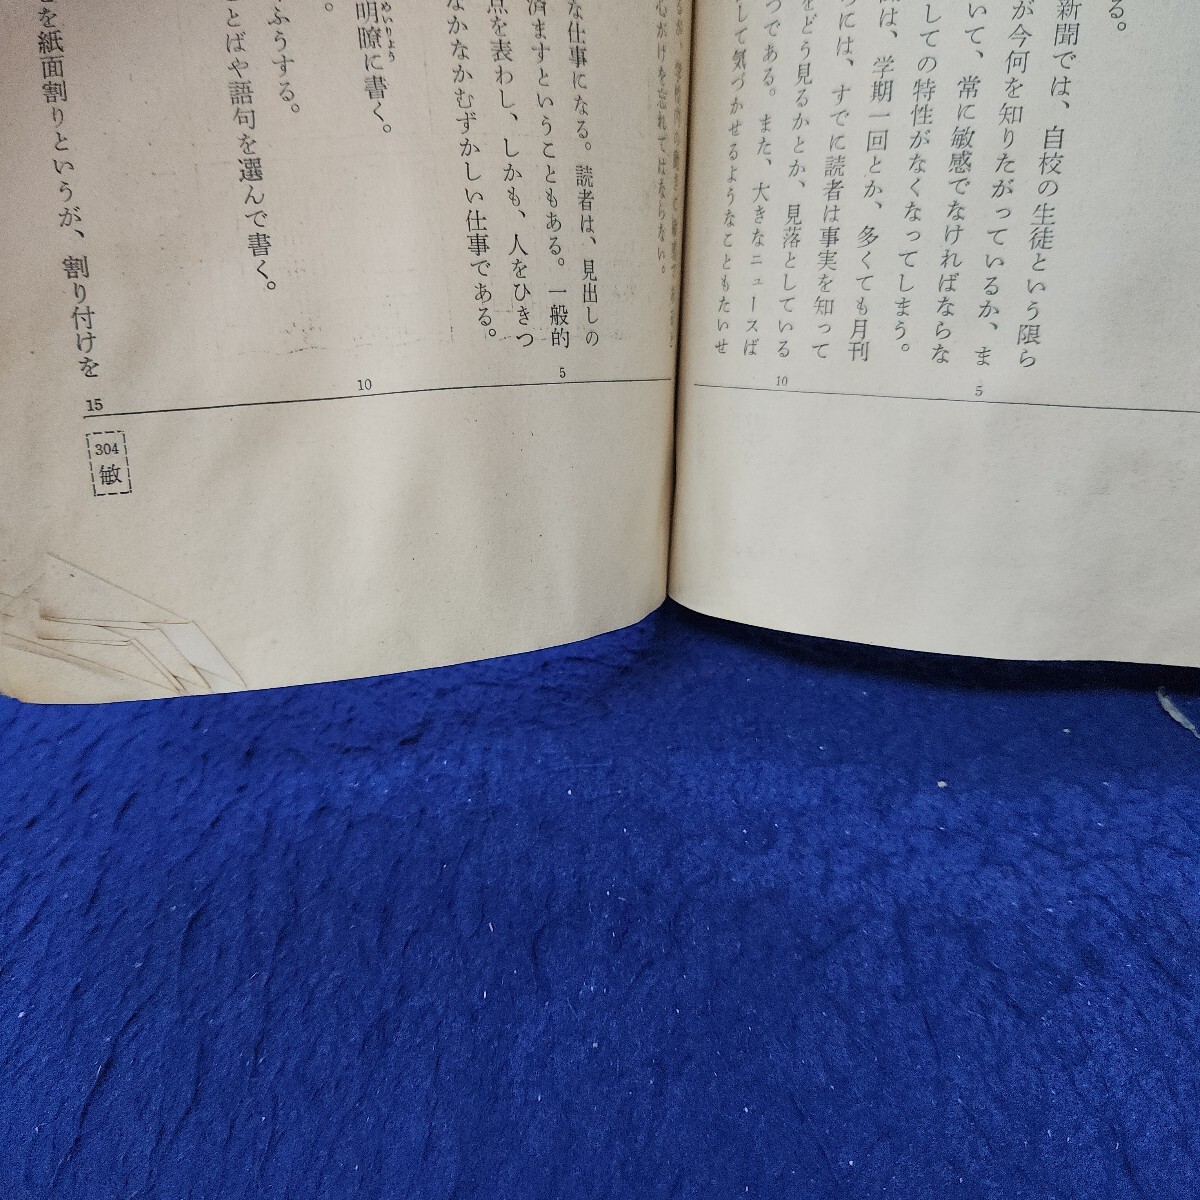 る。
新聞では、自校の生徒という限ら
が今何を知りたがっているか、ま
いて、常に敏感でなければならな
しての特性がなくなってしまう。
は、学期一回とか、多くても月刊
には、すでに読者は事実を知って
をどう見るかとか、見落としている
つである。また、大きなニュースば
して気づかせるようなこともたいせ
5
10
心がけを忘れてはならない。
な仕事になる。読者は、見出しの
済ますということもある。一般的
点を表わし、しかも、人をひきつ
なかなかむずかしい仕事である。
明瞭に書く。
めいりょう
。
ふうする。
とばや語句を選んで書く。
を紙面割りというが、割り付けを
5
10
15
304
敏